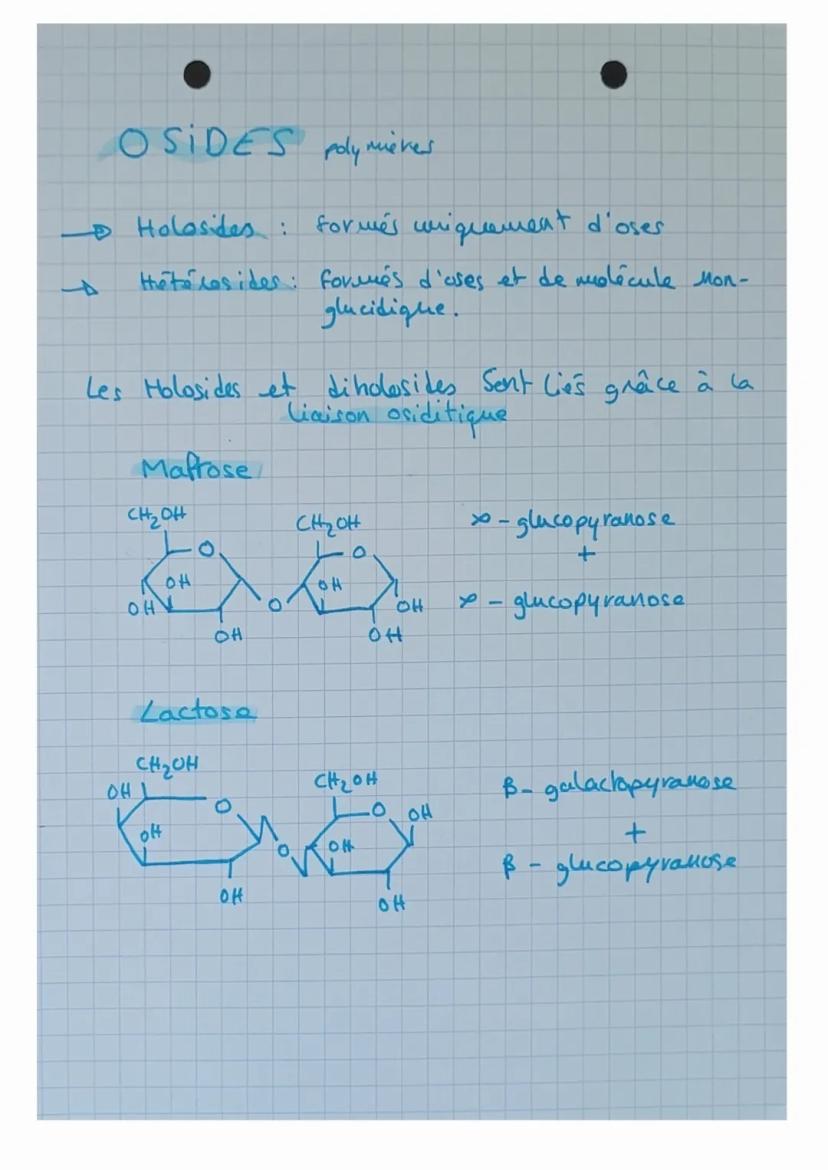 OSiDES polymères
→ Holosides : formés uniquement d'oses
→ Hétérosides : formés d'oses et de molécule non-
glucidique.
Les Holosides et diholosides Sont liés grâce à la
liaison osiditique
Maltose
CH₂OH CH₂OH
O O
OH OH
OH O OH
OH OH
α - glucopyranose
+
α - glucopyranose
Lactose
CH₂OH CH₂OH
OH O O OH
OH O OH
OH OH
β - galactopyranose
+
β - glucopyranose